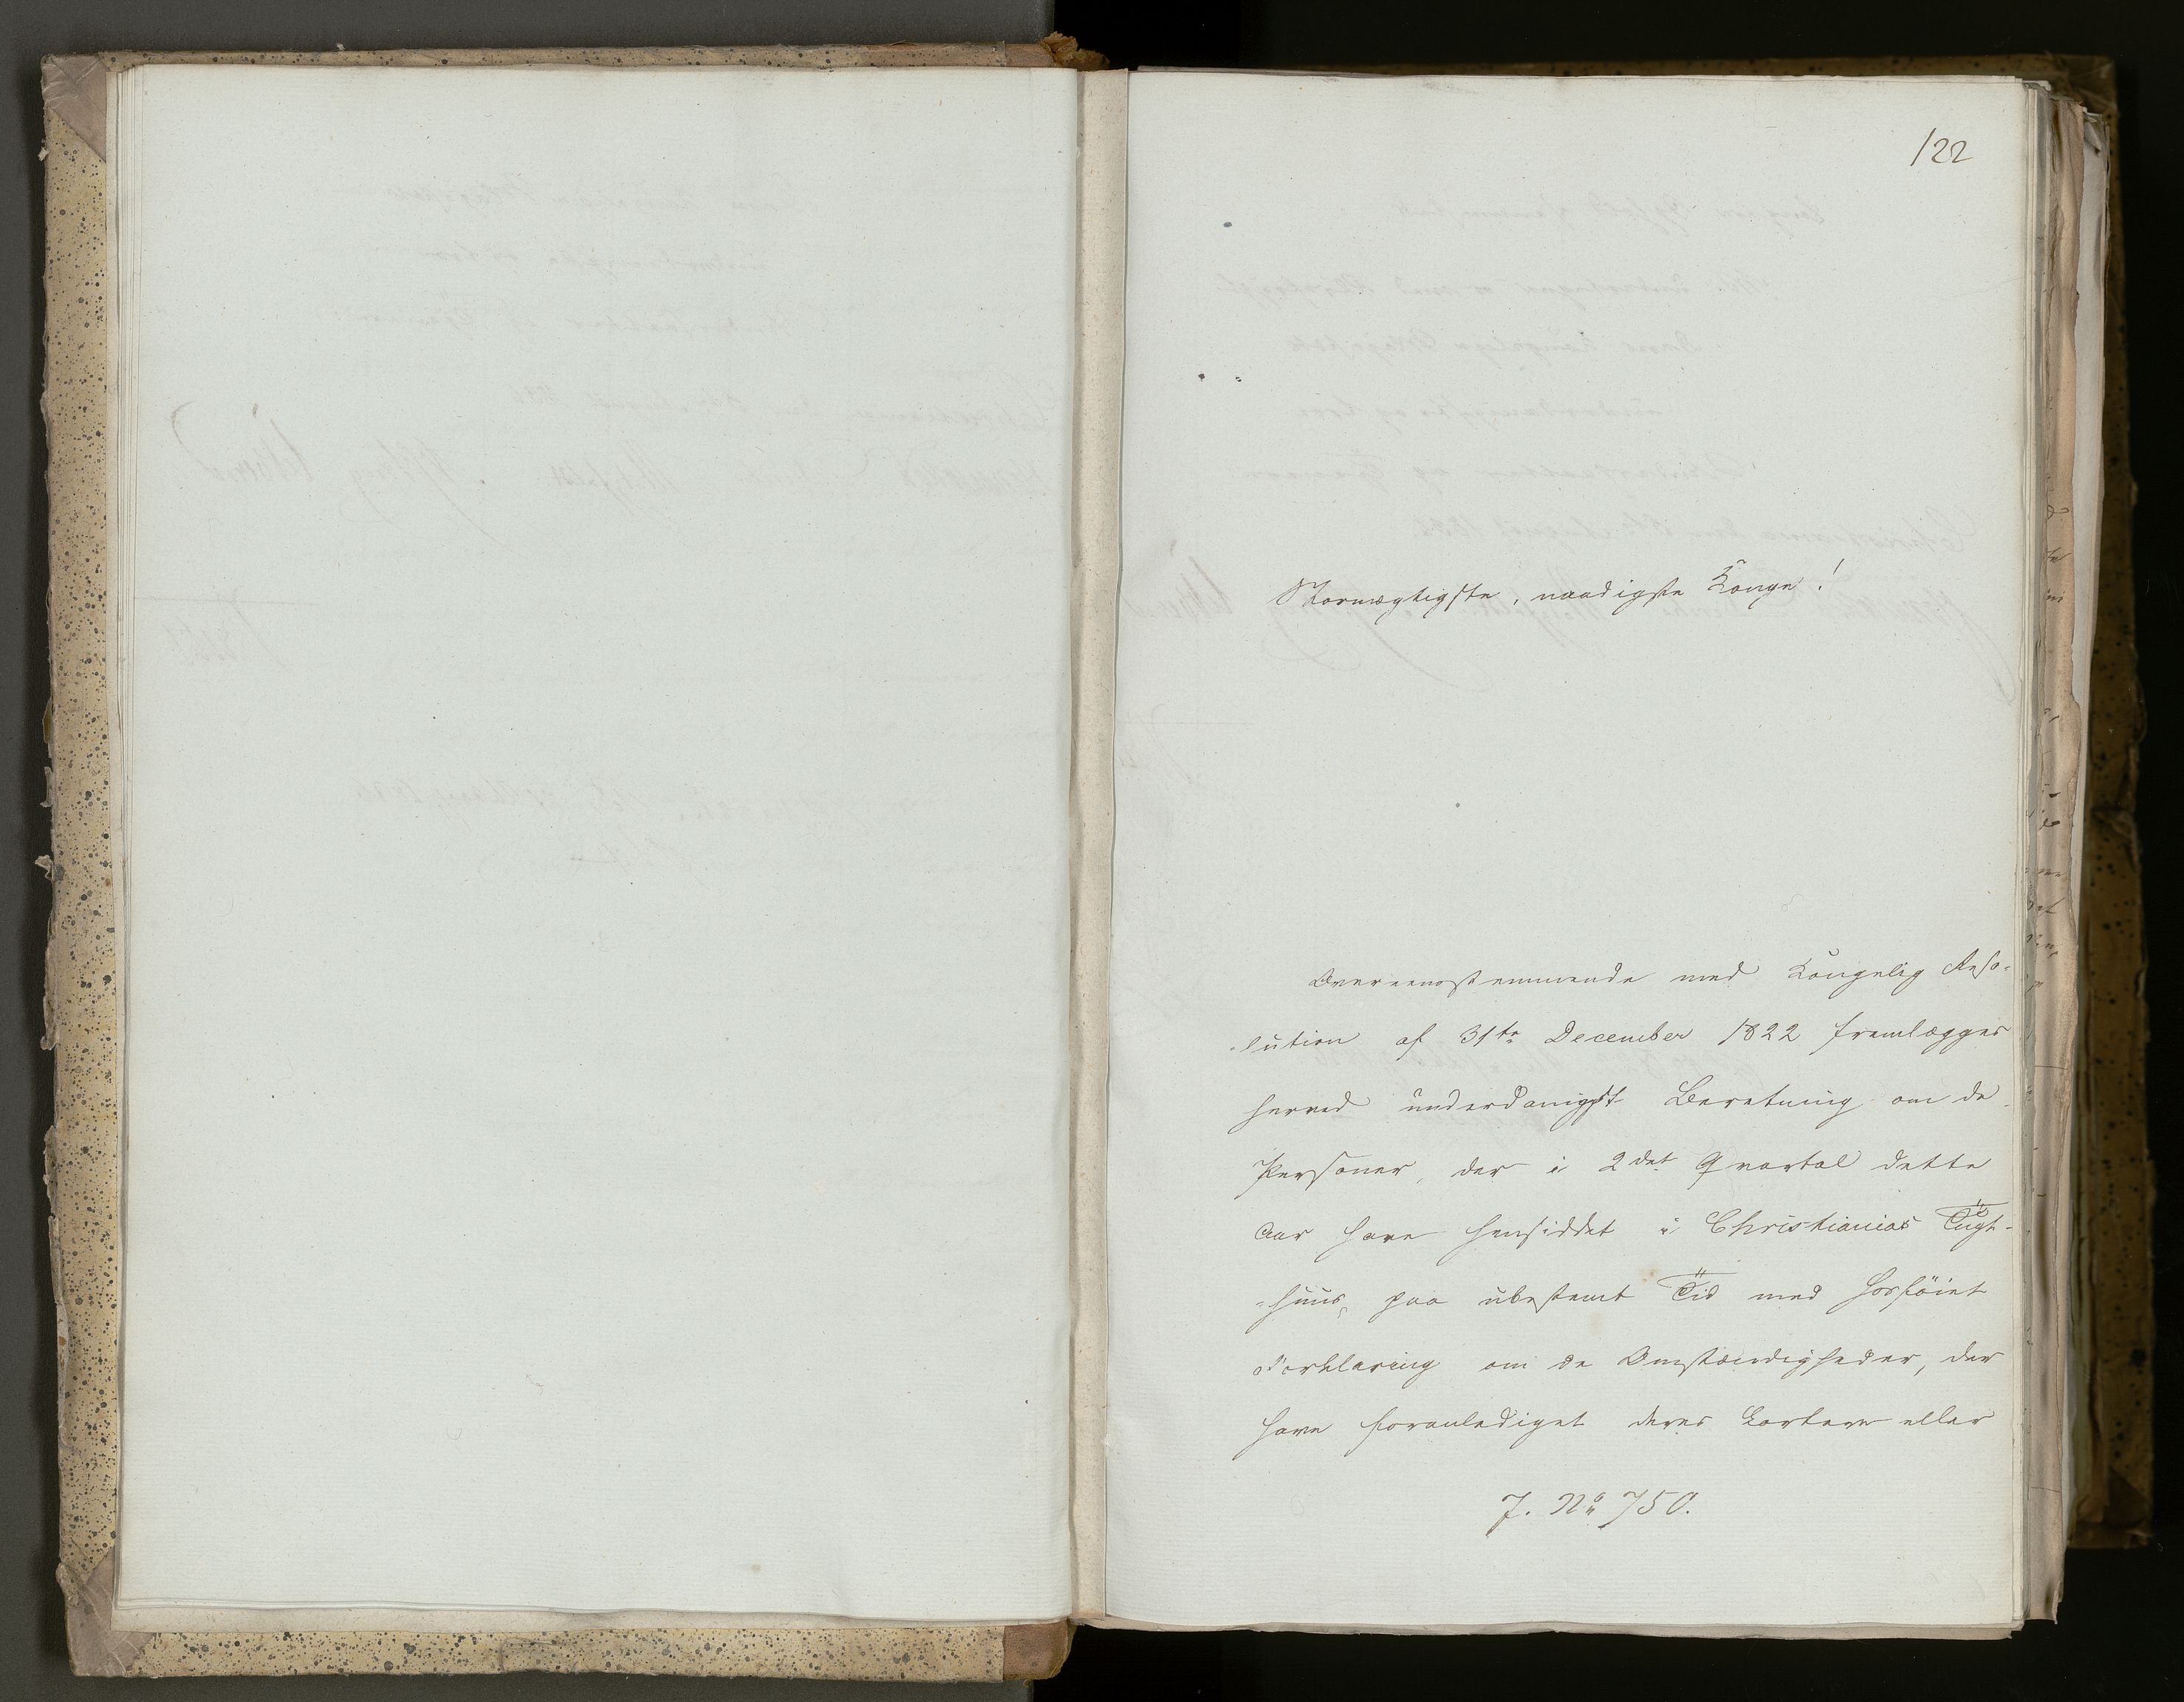 122
Stormægtigste, naadigste Konge!
Overeensstemmende med Kongelig Reso-
-lution af 31te December 1822 fremlægges
herved underdanigst Beretning om de
Personer, der i 2det Qvartal dette
Aar have hensiddet i Christianias Tugt-
-huus, paa ubestemt Tid med hosföiet
Forklaring om de Omstændigheder, der
have foranlediget deres kortere eller
J. No 750.